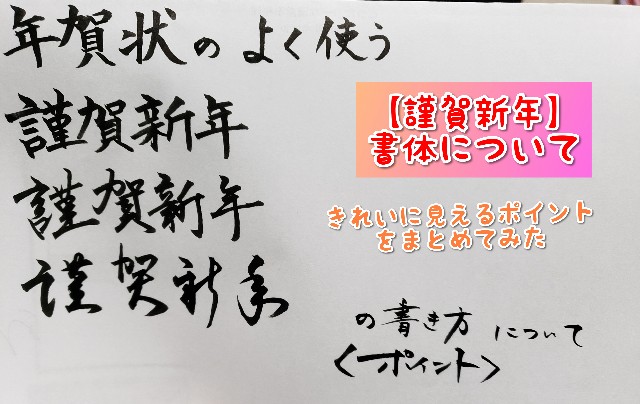 年賀状のよく使う
謹賀新年
謹賀新年
謹賀新年
【謹賀新年】
書体について
きれいに見えるポイント
をまとめてみた
の書き方について
〈ポイント〉